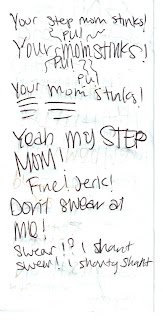 Your step mom stinks!
{PU!}
Your mom stinks!
{PU!}
PU!
Your mom stinks!
Yeah my STEP
MOM!
Fine! Jerk!
Don't swear at
ME!
Swear!? I shant
swear! I shanty shant